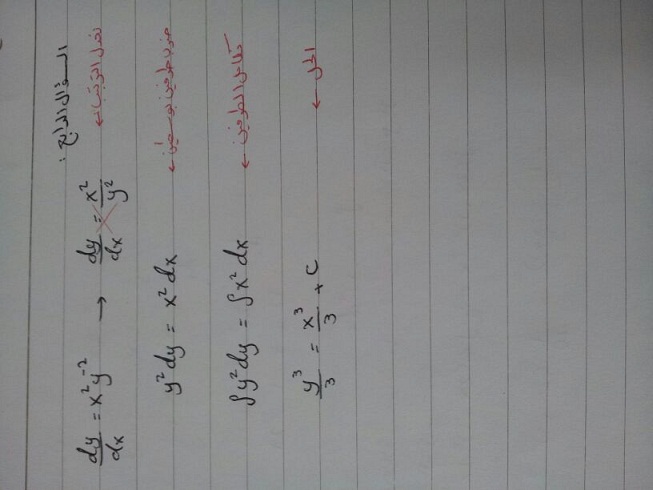 السؤال الرابع :
dy/dx = x² y⁻² → dy/dx = x²/y² ← نعمل الترتيبات
y² dy = x² dx ← ضرب طرفين بوسطين
∫y² dy = ∫x² dx ← نكامل الطرفين
y³/3 = x³/3 + C ← الحل